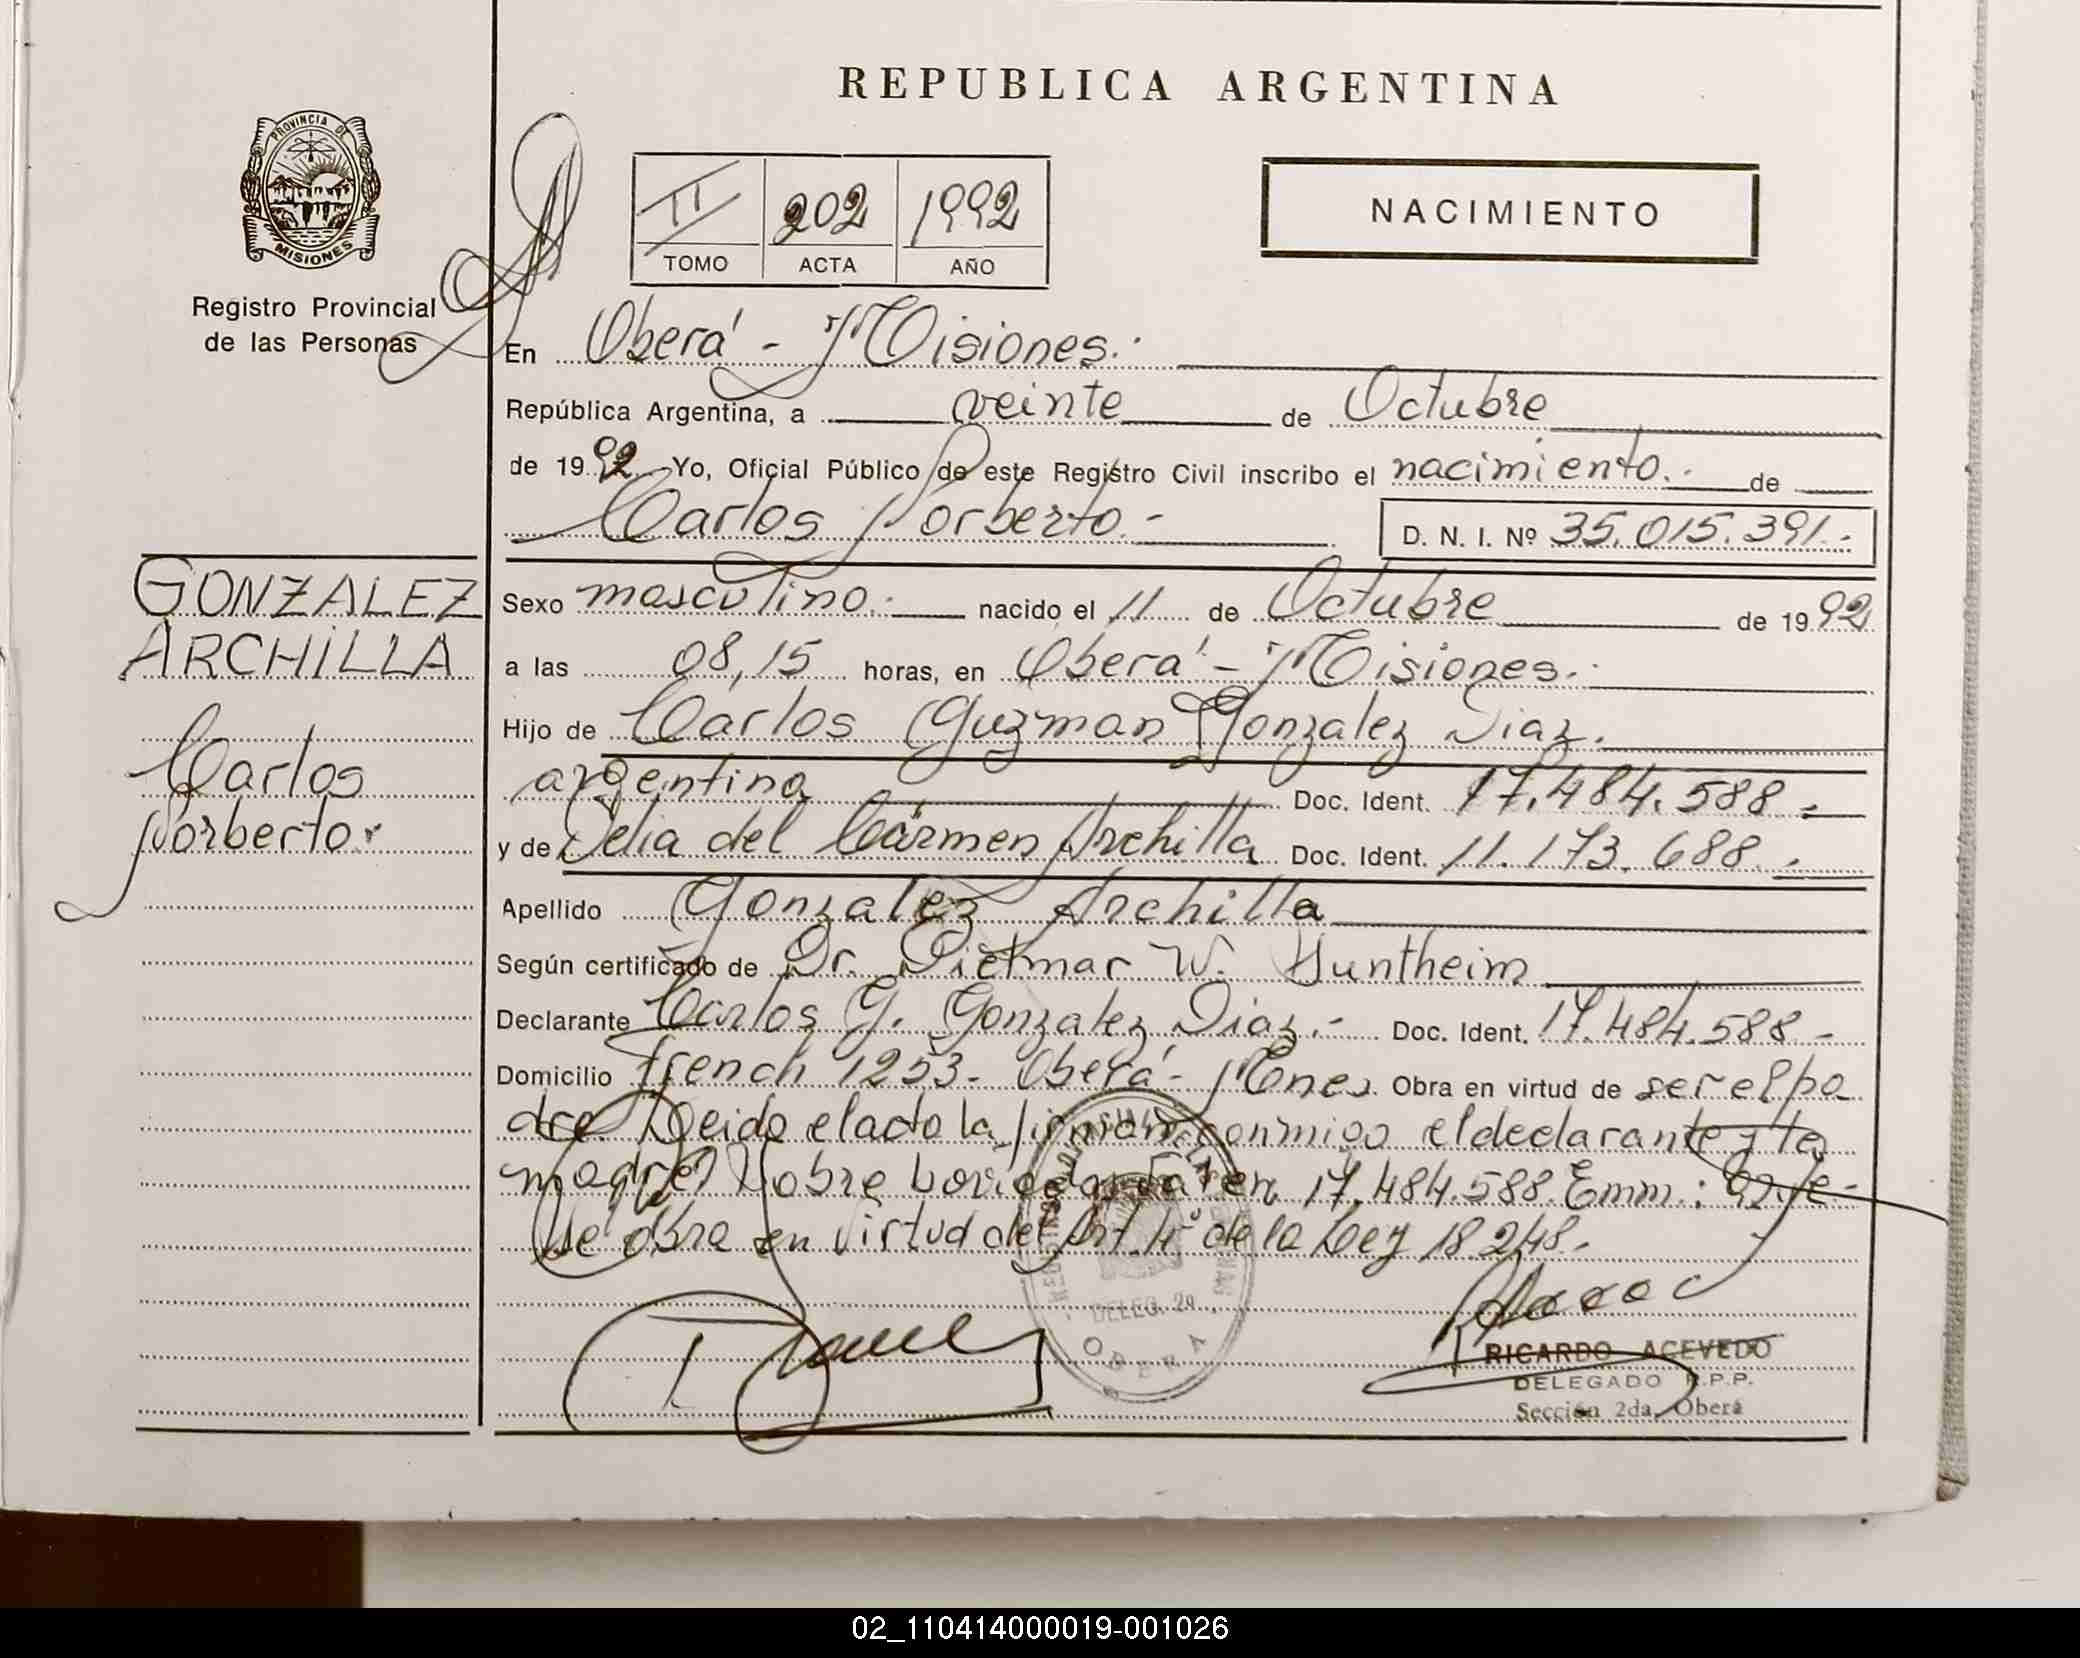 REPUBLICA ARGENTINA
PROVINCIA DE
MISIONES
Registro Provincial
de las Personas
II 202 1992
TOMO ACTA AÑO
NACIMIENTO
En Oberá - Misiones.-
República Argentina, a veinte de Octubre
de 1992 Yo, Oficial Público de este Registro Civil inscribo el nacimiento.- de
Carlos Norberto.- D. N. I. Nº 35.015.391.-
GONZALEZ
ARCHILLA
Carlos
Norberto.
Sexo masculino.- nacido el 11 de Octubre de 1992
a las 08,15 horas, en Oberá - Misiones.-
Hijo de Carlos Guzman Gonzalez Diaz.
argentina Doc. Ident. 17.484.588.-
y de Delia del Cármen Archilla Doc. Ident. 11.173.688.-
Apellido Gonzalez Archilla
Según certificado de Dr. Dietmar W. Huntheim
Declarante Carlos G. Gonzalez Diaz.- Doc. Ident. 17.484.588.-
Domicilio French 1253- Oberá- Mnes. Obra en virtud de ser el pa
dre. Leido el acto la firman conmigo el declarante y la
madre. Sobre en 17.484.588. Emm.: 92.
obra en virtud del Art. 4º de la Ley 18.248.-
DELEG. 2a.
OBERA
RICARDO ACEVEDO
DELEGADO R.P.P.
Sección 2da. Oberá
02_110414000019-001026